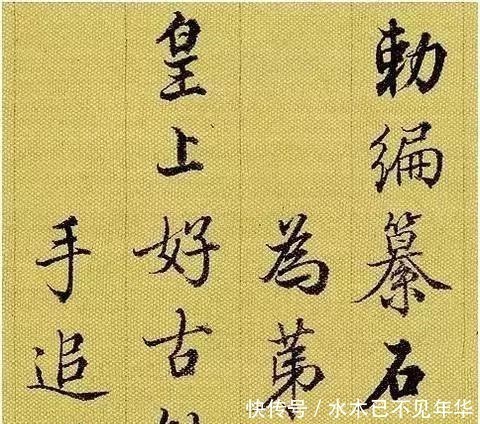 勅編纂石
為苐
皇上好古
手追
快传号／水木已不见年华